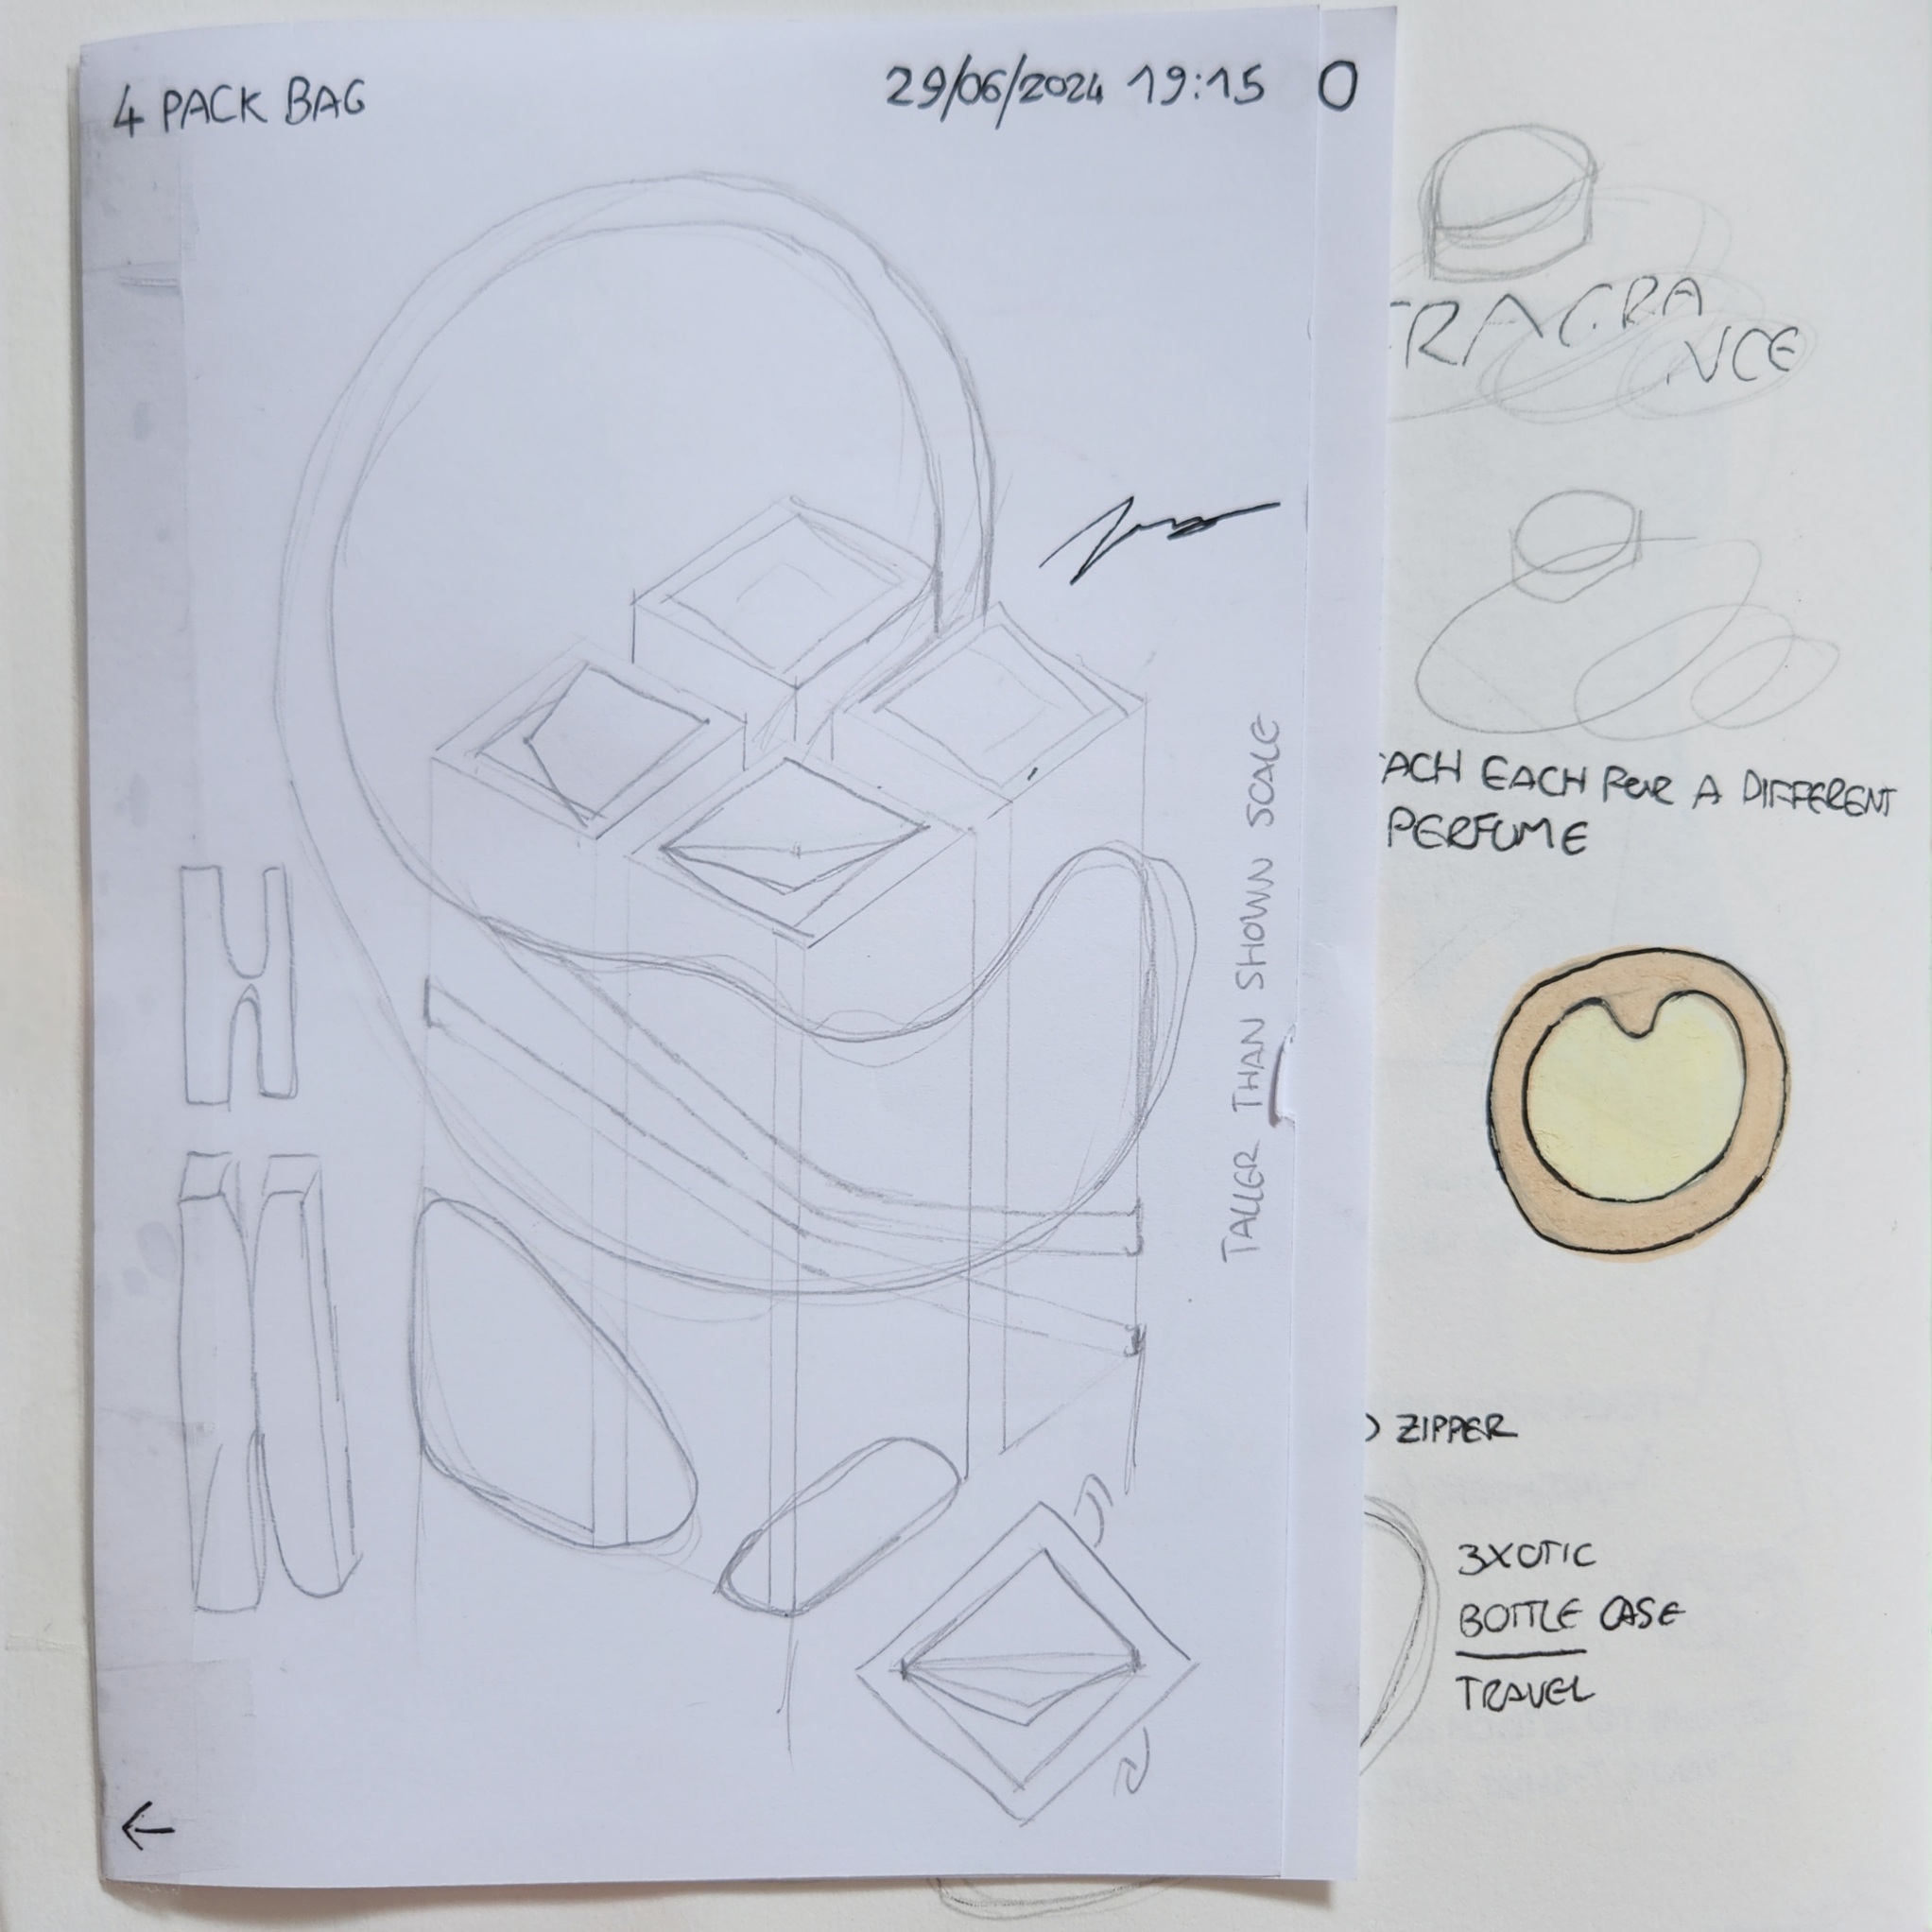 4 PACK BAG
29/06/2024 19:15 O
TALLER THAN SHOWN SCALE
RAGRA
NCE
ACH EACH FOR A DIFFERENT
PERFUME
ZIPPER
3XOTIC
BOTTLE CASE
TRAVEL